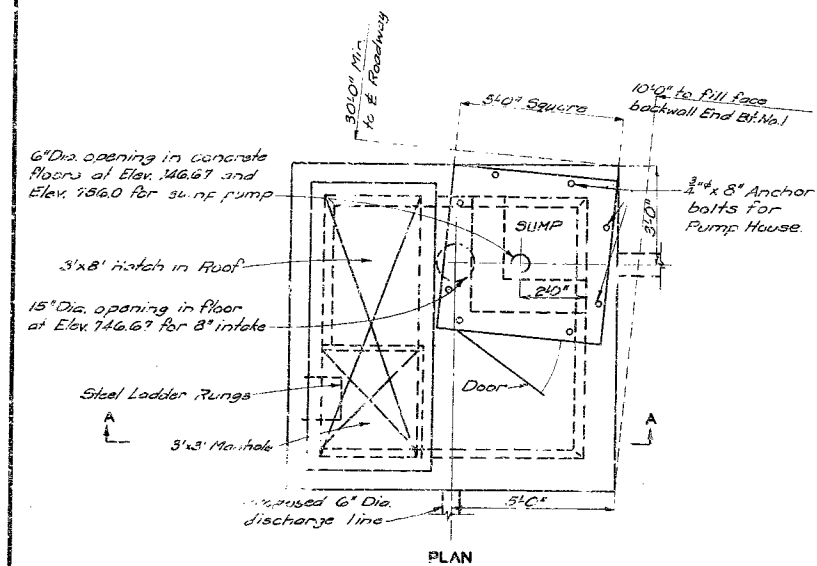 30'-0" Min.
to ℄ Roadway
5'-0" Square
10'-0" to fill face
backwall End Bt. No.1
6" Dia. opening in concrete
floors at Elev. 746.67 and
Elev. 756.0 for sump pump
3/4"ϕ x 8" Anchor
bolts for
Pump House.
3'-0"
SUMP
3'x8' Hatch in Roof
2'-0"
15" Dia. opening in floor
at Elev. 746.67 for 8" intake
Steel Ladder Rungs
Door
A
A
3'x3' Manhole
6" Dia.
discharge line
5'-0"
PLAN